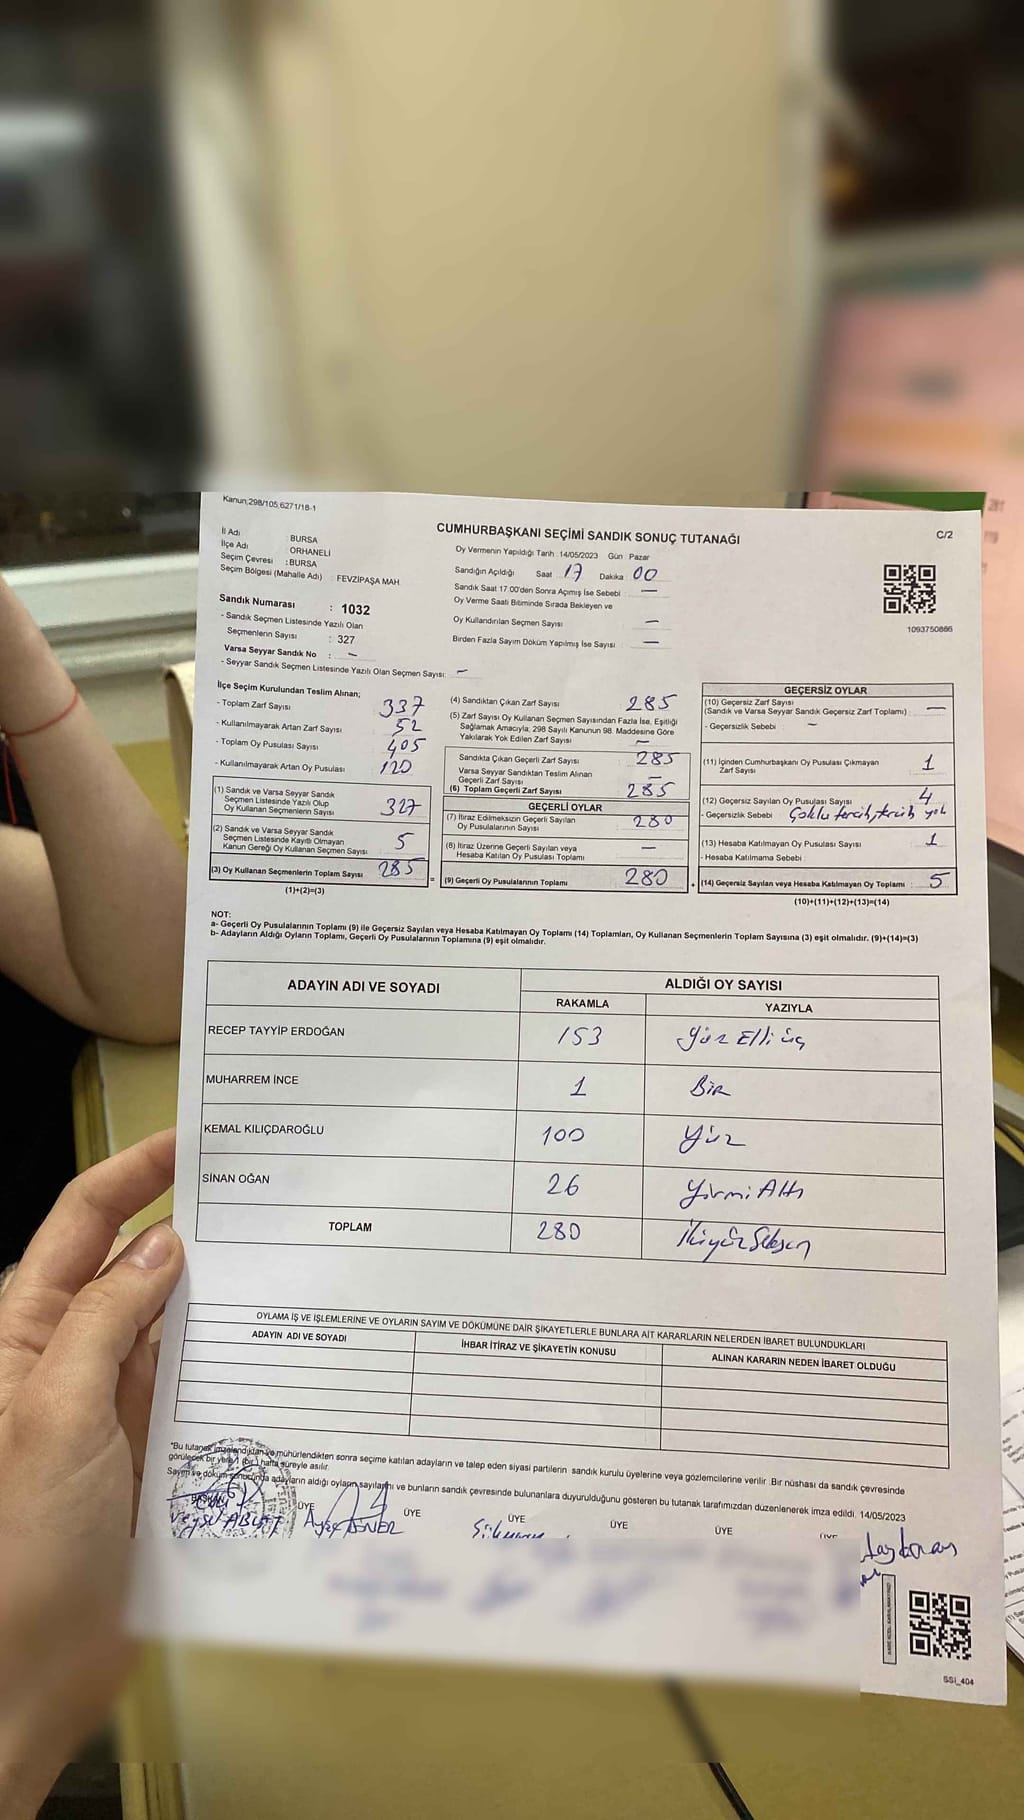 Kanun;298/105;6271/18-1
CUMHURBAŞKANI SEÇİMİ SANDIK SONUÇ TUTANAĞI
C/2
İl Adı : BURSA
İlçe Adı : ORHANELİ
Seçim Çevresi : BURSA
Seçim Bölgesi (Mahalle Adı) : FEVZİPAŞA MAH.
Oy Vermenin Yapıldığı Tarih : 14/05/2023 Gün : Pazar
Sandığın Açıldığı Saat 17 Dakika : 00
Sandık Saat 17.00'den Sonra Açılmış İse Sebebi : —
Oy Verme Saati Bitiminde Sırada Bekleyen ve
Oy Kullandırılan Seçmen Sayısı : —
Birden Fazla Sayım Döküm Yapılmış İse Sayısı : —
1093750866
Sandık Numarası : 1032
- Sandık Seçmen Listesinde Yazılı Olan
Seçmenlerin Sayısı : 327
Varsa Seyyar Sandık No : —
- Seyyar Sandık Seçmen Listesinde Yazılı Olan Seçmen Sayısı: —
İlçe Seçim Kurulundan Teslim Alınan;
- Toplam Zarf Sayısı 337
- Kullanılmayarak Artan Zarf Sayısı 52
- Toplam Oy Pusulası Sayısı 405
- Kullanılmayarak Artan Oy Pusulası 120
(1) Sandık ve Varsa Seyyar Sandık
Seçmen Listesinde Yazılı Olup
Oy Kullanan Seçmenlerin Sayısı 327
(2) Sandık ve Varsa Seyyar Sandık
Seçmen Listesinde Kayıtlı Olmayan
Kanun Gereği Oy Kullanan Seçmen Sayısı 5
(3) Oy Kullanan Seçmenlerin Toplam Sayısı 285
(1)+(2)=(3)
(4) Sandıktan Çıkan Zarf Sayısı 285
(5) Zarf Sayısı Oy Kullanan Seçmen Sayısından Fazla İse, Eşitliği
Sağlamak Amacıyla; 298 Sayılı Kanunun 98. Maddesine Göre
Yakılarak Yok Edilen Zarf Sayısı —
Sandıkta Çıkan Geçerli Zarf Sayısı 285
Varsa Seyyar Sandıktan Teslim Alınan
Geçerli Zarf Sayısı —
(6) Toplam Geçerli Zarf Sayısı 285
GEÇERLİ OYLAR
(7) İtiraz Edilmeksizin Geçerli Sayılan
Oy Pusulalarının Sayısı 280
(8) İtiraz Üzerine Geçerli Sayılan veya
Hesaba Katılan Oy Pusulası Toplamı —
= (9) Geçerli Oy Pusulalarının Toplamı 280
GEÇERSİZ OYLAR
(10) Geçersiz Zarf Sayısı
(Sandık ve Varsa Seyyar Sandık Geçersiz Zarf Toplamı) —
- Geçersizlik Sebebi : —
(11) İçinden Cumhurbaşkanı Oy Pusulası Çıkmayan
Zarf Sayısı 1
(12) Geçersiz Sayılan Oy Pusulası Sayısı 4
- Geçersizlik Sebebi Çoklu tercih, tercih yok
(13) Hesaba Katılmayan Oy Pusulası Sayısı 1
- Hesaba Katılmama Sebebi
+ (14) Geçersiz Sayılan veya Hesaba Katılmayan Oy Toplamı : 5
(10)+(11)+(12)+(13)=(14)
NOT:
a- Geçerli Oy Pusulalarının Toplamı (9) ile Geçersiz Sayılan veya Hesaba Katılmayan Oy Toplamı (14) Toplamları, Oy Kullanan Seçmenlerin Toplam Sayısına (3) eşit olmalıdır. (9)+(14)=(3)
b- Adayların Aldığı Oyların Toplamı, Geçerli Oy Pusulalarının Toplamına (9) eşit olmalıdır.
ADAYIN ADI VE SOYADI
ALDIĞI OY SAYISI
RAKAMLA YAZIYLA
RECEP TAYYİP ERDOĞAN 153 Yüz Elli üç
MUHARREM İNCE 1 Bir
KEMAL KILIÇDAROĞLU 100 Yüz
SİNAN OĞAN 26 Yirmi Altı
TOPLAM 280 İkiyüz Seksen
OYLAMA İŞ VE İŞLEMLERİNE VE OYLARIN SAYIM VE DÖKÜMÜNE DAİR ŞİKAYETLERLE BUNLARA AİT KARARLARIN NELERDEN İBARET BULUNDUKLARI
ADAYIN ADI VE SOYADI İHBAR İTİRAZ VE ŞİKAYETİN KONUSU ALINAN KARARIN NEDEN İBARET OLDUĞU
*Bu tutanak imzalandıktan ve mühürlendikten sonra seçime katılan adayların ve talep eden siyasi partilerin sandık kurulu üyelerine veya gözlemcilerine verilir. Bir nüshası da sandık çevresinde
görülecek bir yere 1 (bir) hafta süreyle asılır.
Sayım ve döküm sonucunda adayların aldığı oyların sayılarını ve bunların sandık çevresinde bulunanlara duyurulduğunu gösteren bu tutanak tarafımızdan düzenlenerek imza edildi. 14/05/2023
BAŞKAN ÜYE ÜYE ÜYE ÜYE ÜYE ÜYE
SSİ_404
281